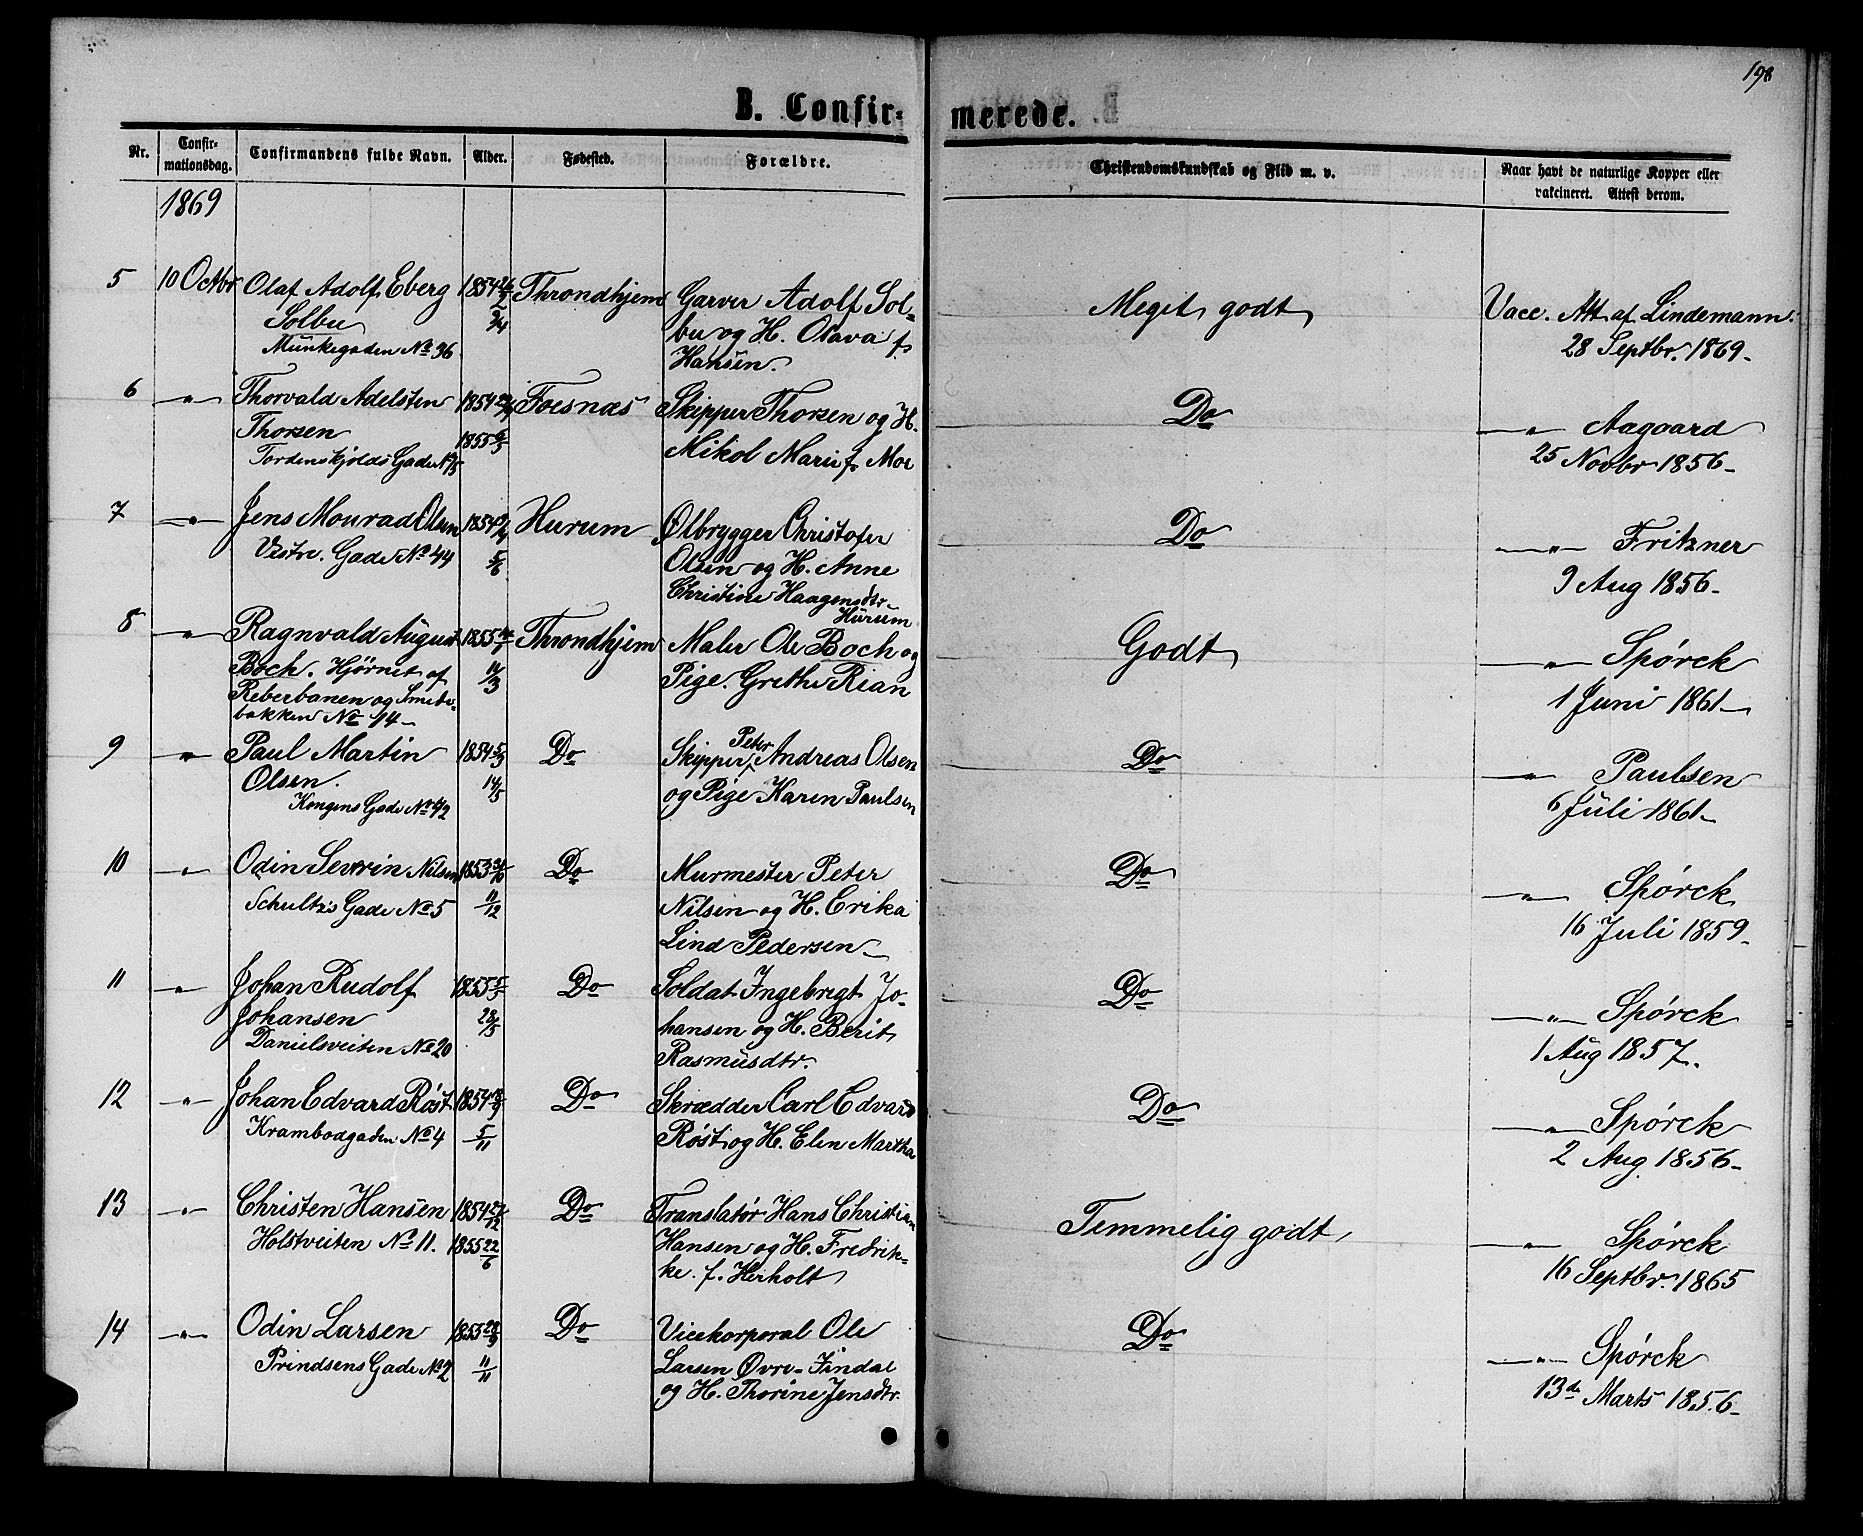 198
B. Confirmerede.
Nr. Confirmationsdag. Confirmandens fulde Navn. Alder. Fødested. Forældre. Christendomskundskab og Flid m. v. Naar havt de naturlige Kopper eller vakcineret. Attest derom.
1869
5 10 Octbr Olaf Adolf Eberg 1854 Throndhjem Garver Adolf Sol- Meget godt Vacc. Att. af Lindemann.
Solbu 2/4 bu og H. Olava f. 28 Septbr. 1869.
Munkegaden No 36 Hansen.
6 " Thorvald Adelsten 1854 Foesnæs Skipper Thorsen og H. Do " Aagaard
Thorsen 1855 Mikol Marie f. Moe 25 Novbr 1856.
Tordenskjolds Gade No 15
7 " Jens Monrad Olsen 1854 Hurum Ølbrygger Christofer Do " Fritzner
Vestre Gade No 44 5/6 Olsen og H. Anne 9 Aug 1856.
Christine Haagensdtr
Hurum
8 " Ragnvald August 1855 Throndhjem Maler Ole Boch og Godt " Spørck
Boch. Hjørnet af 11/3 Pige Grethe Rian 1 Juni 1861
Reberbanen og Smede-
bakken No 14
9 " Paul Martin 1854 5/3 Do Skipper Peter Andreas Olsen Do " Paulsen
Olsen. 14/5 og Pige Karen Paulsen 6 Juli 1861
Kongens Gade No 42
10 " Odin Severin Nilsen 1853 Do Murmester Peter Do " Spørck
Schultz's Gade No 5 11/12 Nilsen og H. Erika 16 Juli 1859
Lind Pedersen
11 " Johan Rudolf 1855 5/3 Do Soldat Ingebrigt Jo- Do " Spørck
Johansen 28/5 hansen og H. Berit 1 Aug 1857.
Danielsveiten No 20 Rasmusdtr.
12 " Johan Edvard Røst 1854 Do Skrædder Carl Edvard Do " Spørck
Krambodgaden No 4 5/11 Røst og H. Elen Martha 2 Aug 1856
13 " Christen Hansen 1854 Do Translatør Hans Christian Temmelig godt " Spørck
Holstveiten No 11. 1855 22/6 Hansen og H. Fredrik- 16 Septbr. 1865
ke f. Herholt
14 " Odin Larsen 1855 Do Vicekorporal Ole Do " Spørck
Prindsens Gade No 2 11/11 Larsen Øvre-Findal 13de Marts 1856
og H. Thorine Jensdtr.